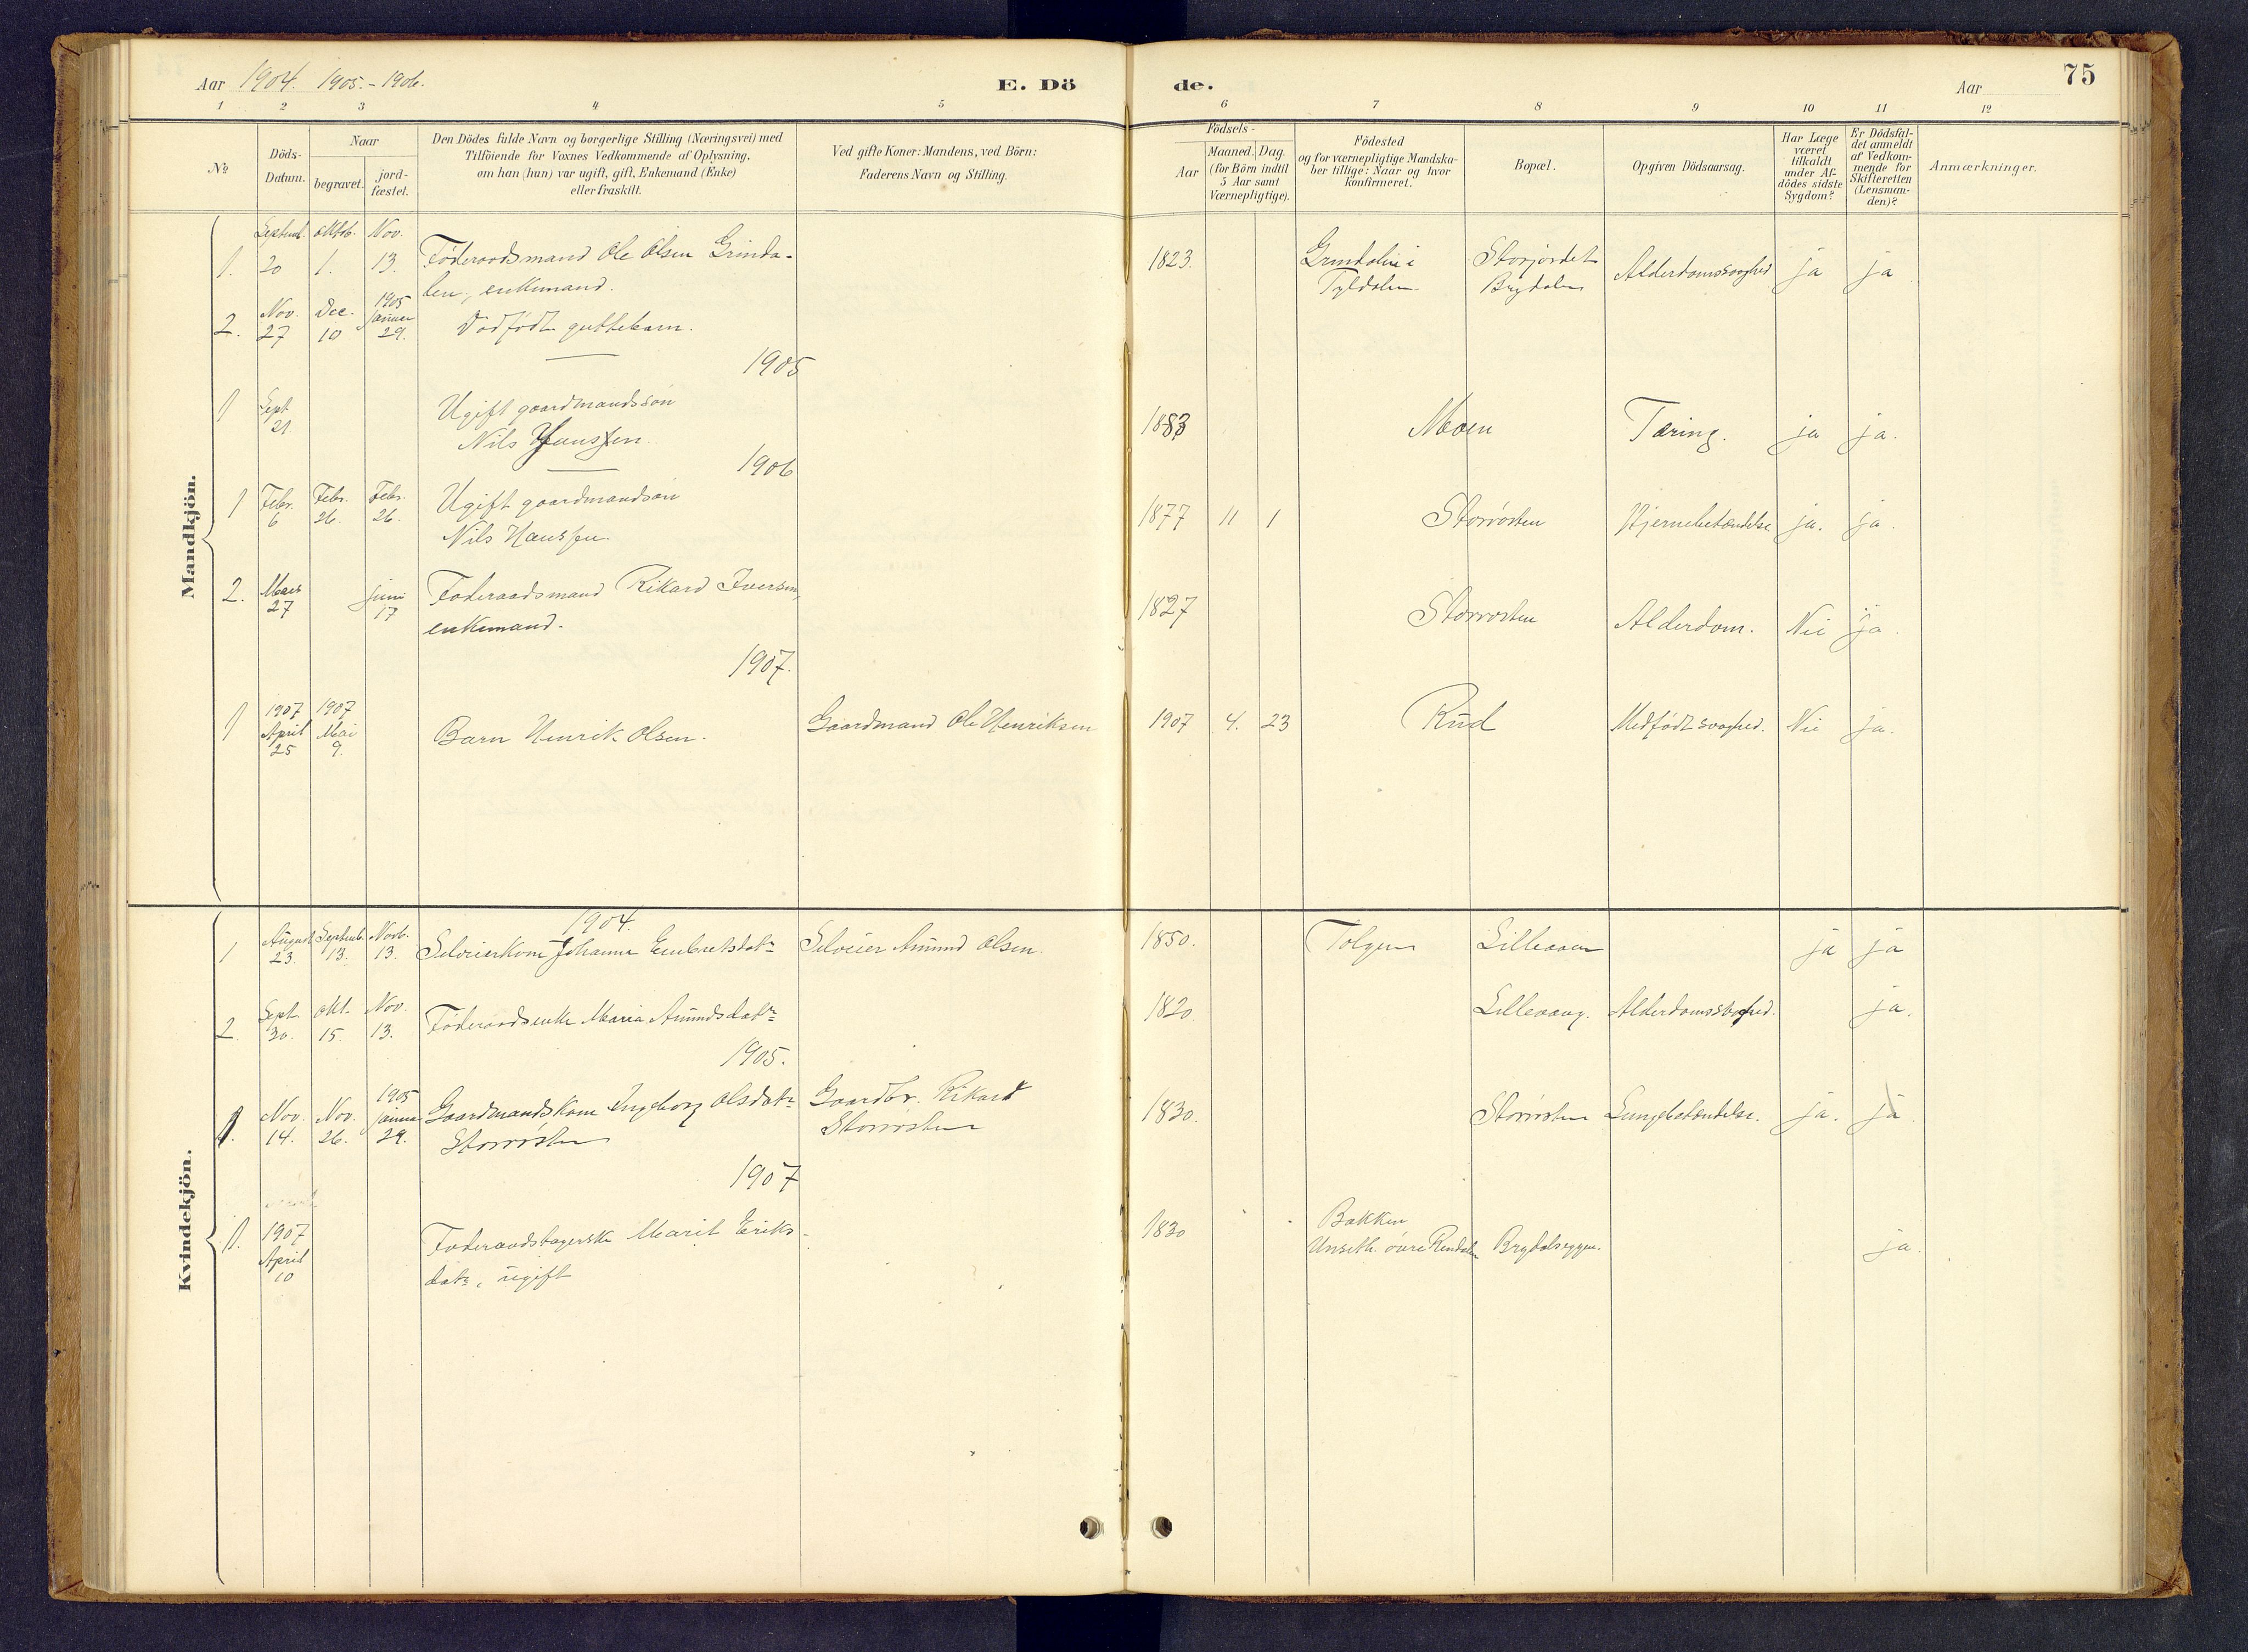 Aar 1904. 1905.-1906.
E. Dö
de.
Aar
75
1 2 3 4 5 6 7 8 9 10 11 12
№
Döds-
Datum.
Naar
begravet.
jord-
fæstet.
Den Dödes fulde Navn og borgerlige Stilling (Næringsvei) med
Tilföiende for Voxnes Vedkommende af Oplysning,
om han (hun) var ugift, gift, Enkemand (Enke)
eller fraskilt.
Ved gifte Koner: Mandens, ved Börn:
Faderens Navn og Stilling.
Födsels-
Aar
Maaned. Dag.
(for Börn indtil
5 Aar samt
Værnepligtige).
Födested
og for værnepligtige Mandska-
ber tillige: Naar og hvor
konfirmeret.
Bopæl.
Opgiven Dödsaarsag.
Har Læge
været
tilkaldt
under Af-
dödes sidste
Sygdom?
Er Dödsfal-
det anmeldt
af Vedkom-
mende for
Skifteretten
(Lensman-
den)?
Anmærkninger.
Mandkjön.
Septemb. oktb. Nov.
1. 20 1. 13. Föderaadsmand Ole Olsen Grinda-
len, enkemand.
1823. Grindalen i
Tyldalen
Storjordet
Brydalen
Alderdomssvaghed ja ja
2. Nov. 27 Dec. 10 1905 Januar 29. Dödfödt guttebarn.
1905
1 Sept 21. Ugift gaardmandssön
Nils Hanssen.
1883 Moen Tæring. ja ja.
1906
1 Febr. 6 Febr. 26. Febr. 26. Ugift gaardmandsön
Nils Hanssen.
1877 11 1 Storrösten Hjernebetændelse ja. ja.
2. Mars 27 Juni 17 Foderaadsmand Rikard Iversen,
enkemand.
1827 Storrösten Alderdom. Nei ja.
1907.
1 1907 April 25 1907 Mai 9. Barn Henrik Olsen. Gaardmand Ole Henriksen 1907 4. 23 Rud Medfödt svaghed. Nei ja.
Kvindekjön.
1904.
1 August 23. Septemb. 13. Novb. 13. Selveierkone Johanne Embretsdatr Selveier Amund Olsen. 1850. Tolgen Lillevaa ja ja
2 Sept. 30. okt. 15. Nov. 13. Föderaadsenke Maria Amundsdatr 1820. Lillevang. Alderdomssvaghed. ja.
1905.
1. Nov. 14. Nov. 26. 1905 Januar 29. Gaardmandskone Ingeborg Olsdatr
Storrösten
Gaardbr. Rikard
Storrösten
1830. Storrösten Lungebetændelse. ja. ja
1907
1. 1907 April 10 Foderaadstagerske Marit Eriks-
datr, ugift
1830 Bakken
Unseth. övre Rendalen Brydalseggen. ja.